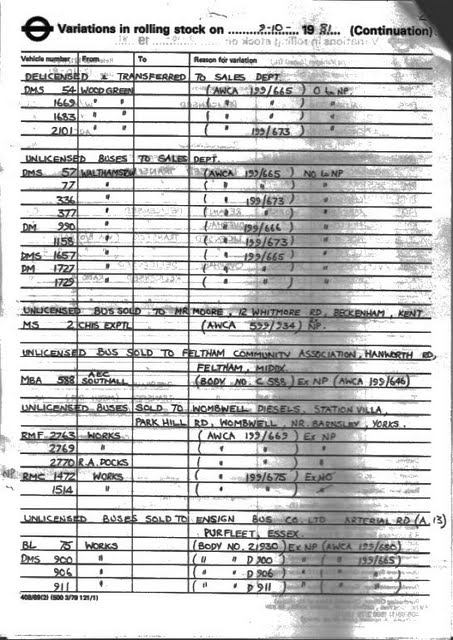 Variations in rolling stock on 9-10- 19 81 (Continuation)
Vehicle number From To Reason for variation
DELICENSED & TRANSFERRED TO SALES DEPT.
DMS 54 WOOD GREEN (AWCA 199/665) O to NP.
1669 " " ( " " ) "
1683 " " ( " " ) "
2101 " " ( 199/673) "
UNLICENSED BUSES TO SALES DEPT.
DMS 57 WALTHAMSTOW (AWCA 199/665) NO to NP
77 " ( " " ) "
336 " ( " 199/673) "
377 " ( " " ) "
DM 990 " ( " 199/666) "
1158 " ( " 199/673) "
DMS 1657 " ( " 199/665) "
DM 1727 " ( " " ) "
1729 " ( " " ) "
UNLICENSED BUS SOLD TO MR MOORE, 12 WHITMORE RD, BECKENHAM, KENT
MS 2 CHIS EXPTL (AWCA 599/934) NP.
UNLICENSED BUS SOLD TO FELTHAM COMMUNITY ASSOCIATION, HANWORTH RD,
FELTHAM, MIDDX.
MBA 588 AEC SOUTHALL (BODY NO. C 588) Ex NP (AWCA 199/646)
UNLICENSED BUSES SOLD TO WOMBWELL DIESELS, STATION VILLA,
PARK HILL RD, WOMBWELL, NR. BARNSLEY, YORKS.
RMF 2763 WORKS (AWCA 199/669) Ex NP
2769 " ( " " ) "
2770 R.A. DOCKS ( " " ) "
NP RMC 1472 WORKS ( " 199/675) Ex NO
1514 " ( " " )
UNLICENSED BUSES SOLD TO ENSIGN BUS CO. LTD ARTERIAL RD (A.13)
PURFLEET, ESSEX.
BL 75 WORKS (BODY NO. 21930) Ex NP (AWCA 199/686)
DMS 900 " ( " " D 900 ) " " ( " 199/665)
906 " ( " " D 906 ) " " ( " " )
911 " ( " " D 911 ) " " ( " " )
408/89(2) (500 3/79 121/1)